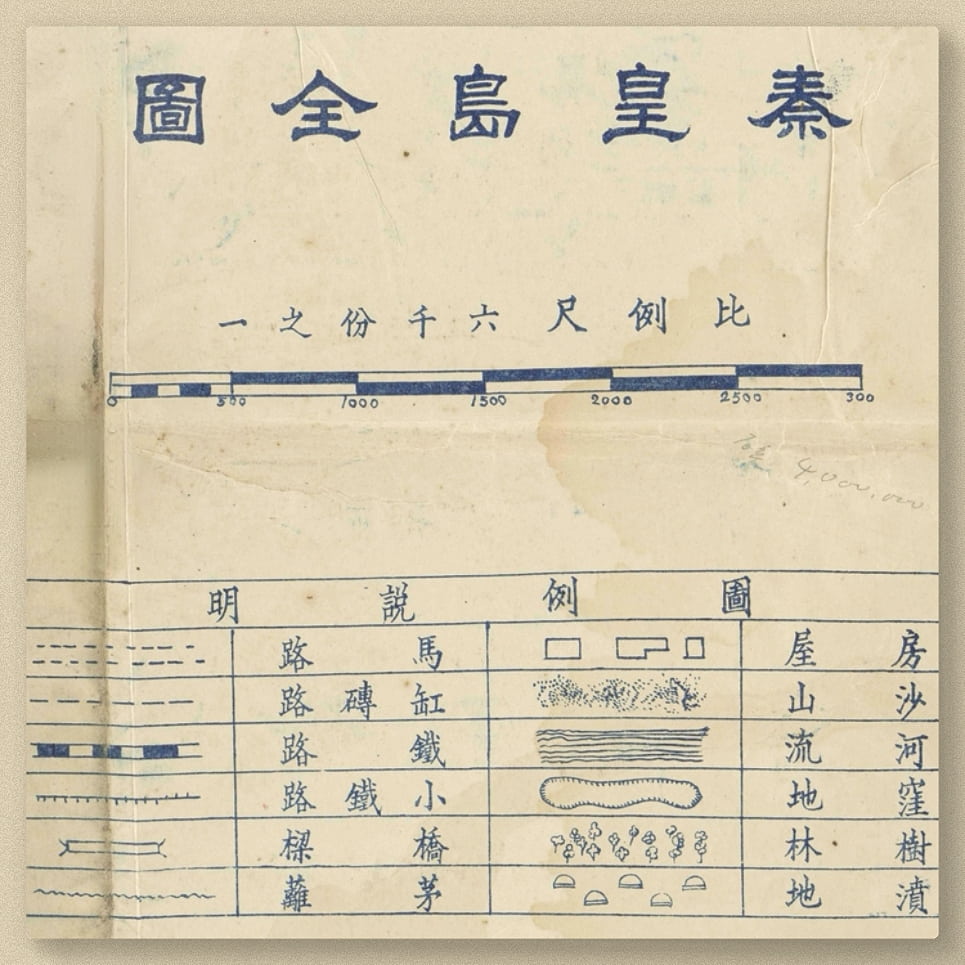 秦皇島全圖
比例尺六千份之一
0 500 1000 1500 2000 2500 300
4,000,000
圖例説明
房屋 馬路
沙山 缸磚路
河流 鐵路
窪地 小鐵路
樹林 橋樑
濆地 茅蘺